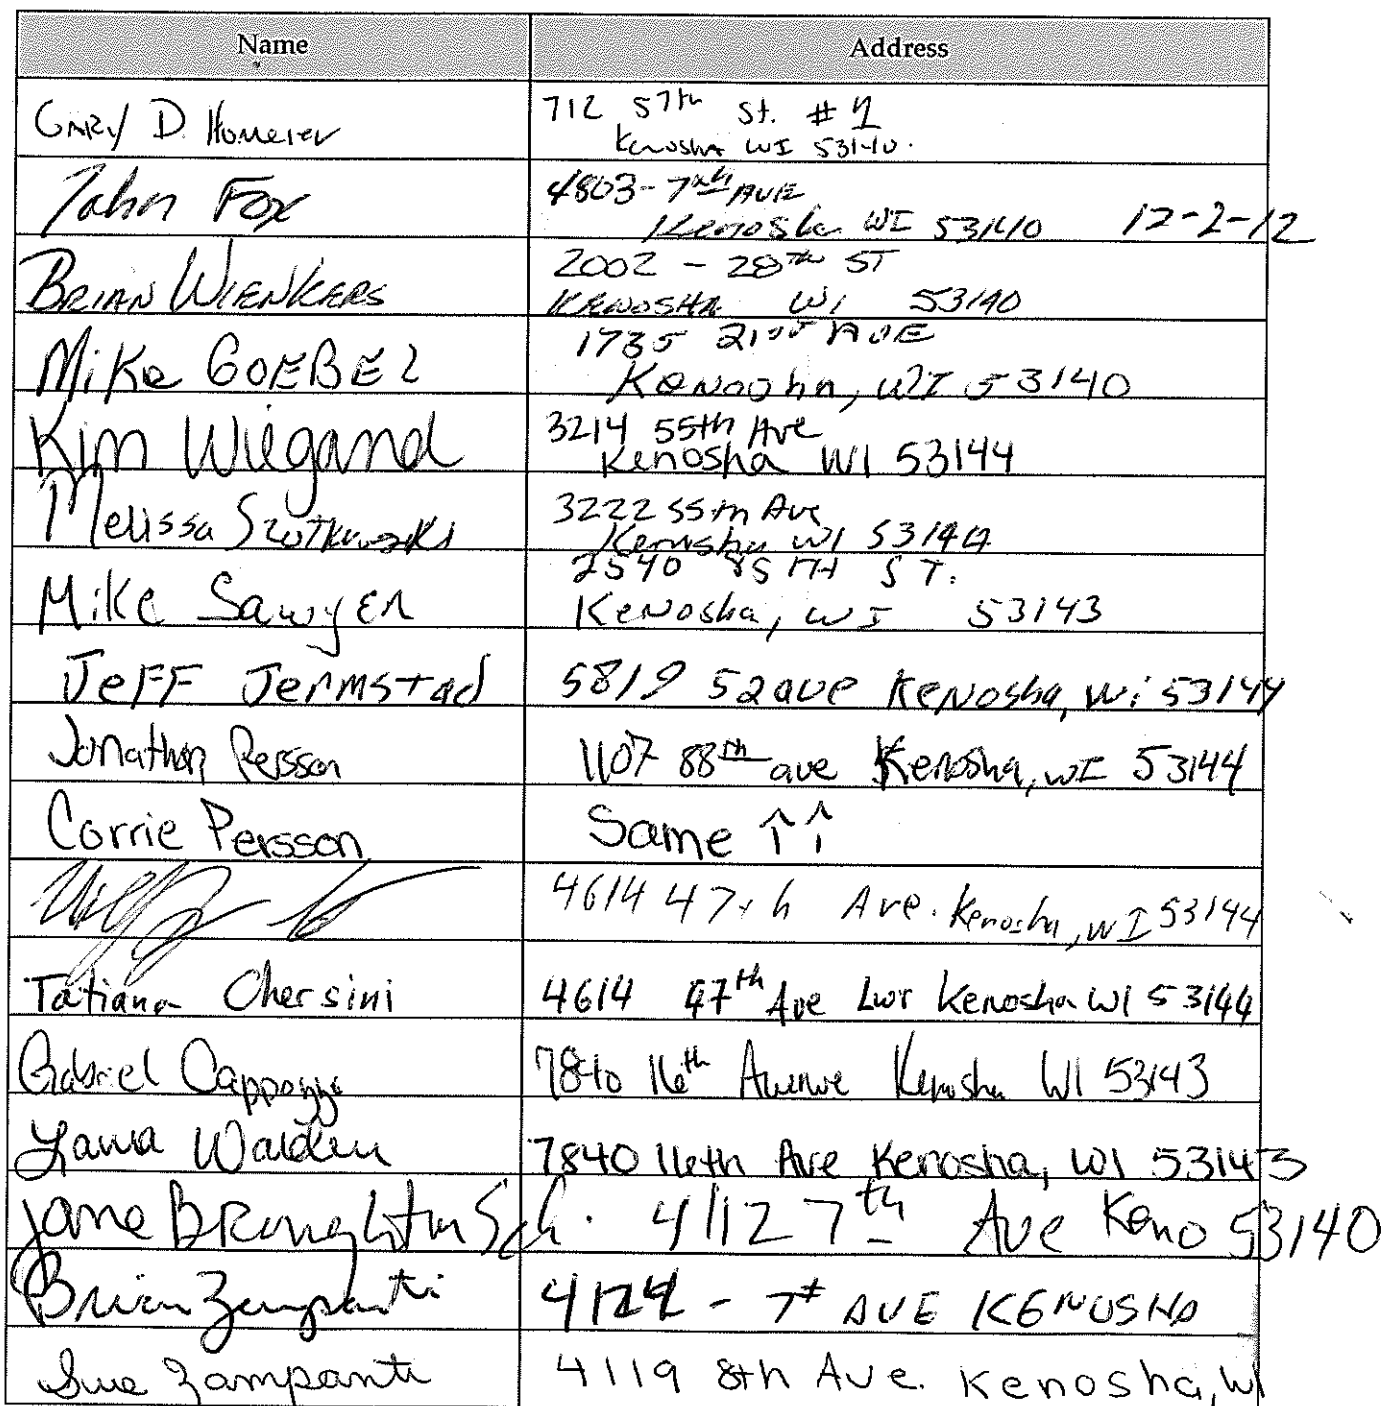 Name Address
Gary D. Homeier 712 57th St. # 1
Kenosha WI 53140.
John Fox 4803 - 7th AVE
Kenosha WI 53140 12-2-12
BRIAN WIENKERS 2002 - 28TH ST
KENOSHA WI 53140
Mike GOEBEL 1735 21st AVE
Kenosha, WI 53140
Kim Wiegand 3214 55th Ave
Kenosha WI 53144
Melissa Szotkowski 3222 55th Ave
Kenosha WI 53144
2540 85TH ST.
Mike Sawyer Kenosha, WI 53143
JeFF Jermstad 5819 52 ave Kenosha, Wi 53144
Jonathon Persson 1107 88th ave Kenosha, WI 53144
Corrie Persson Same ↑↑
4614 47th Ave. Kenosha, WI 53144
Tatiana Chersini 4614 47th Ave Lwr Kenosha WI 53144
Gabriel Cappozzo 7840 16th Avenue Kenosha WI 53143
Laura Walden 7840 16th Ave Kenosha, WI 53143
Jane Broughton Sch. 4112 7th Ave Keno 53140
Brian Zampanti 4124 - 7th AVE KENOSHA
Sue Zampanti 4119 8th Ave. Kenosha, WI